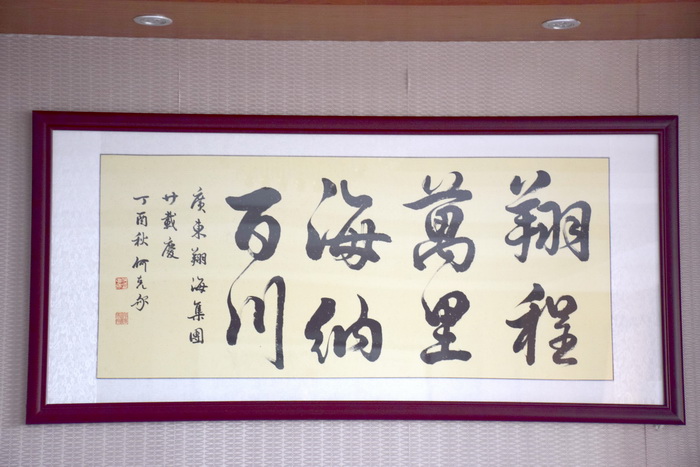 翔程
萬里
海納
百川
廣東翔海集團
廿載慶
丁酉秋何克